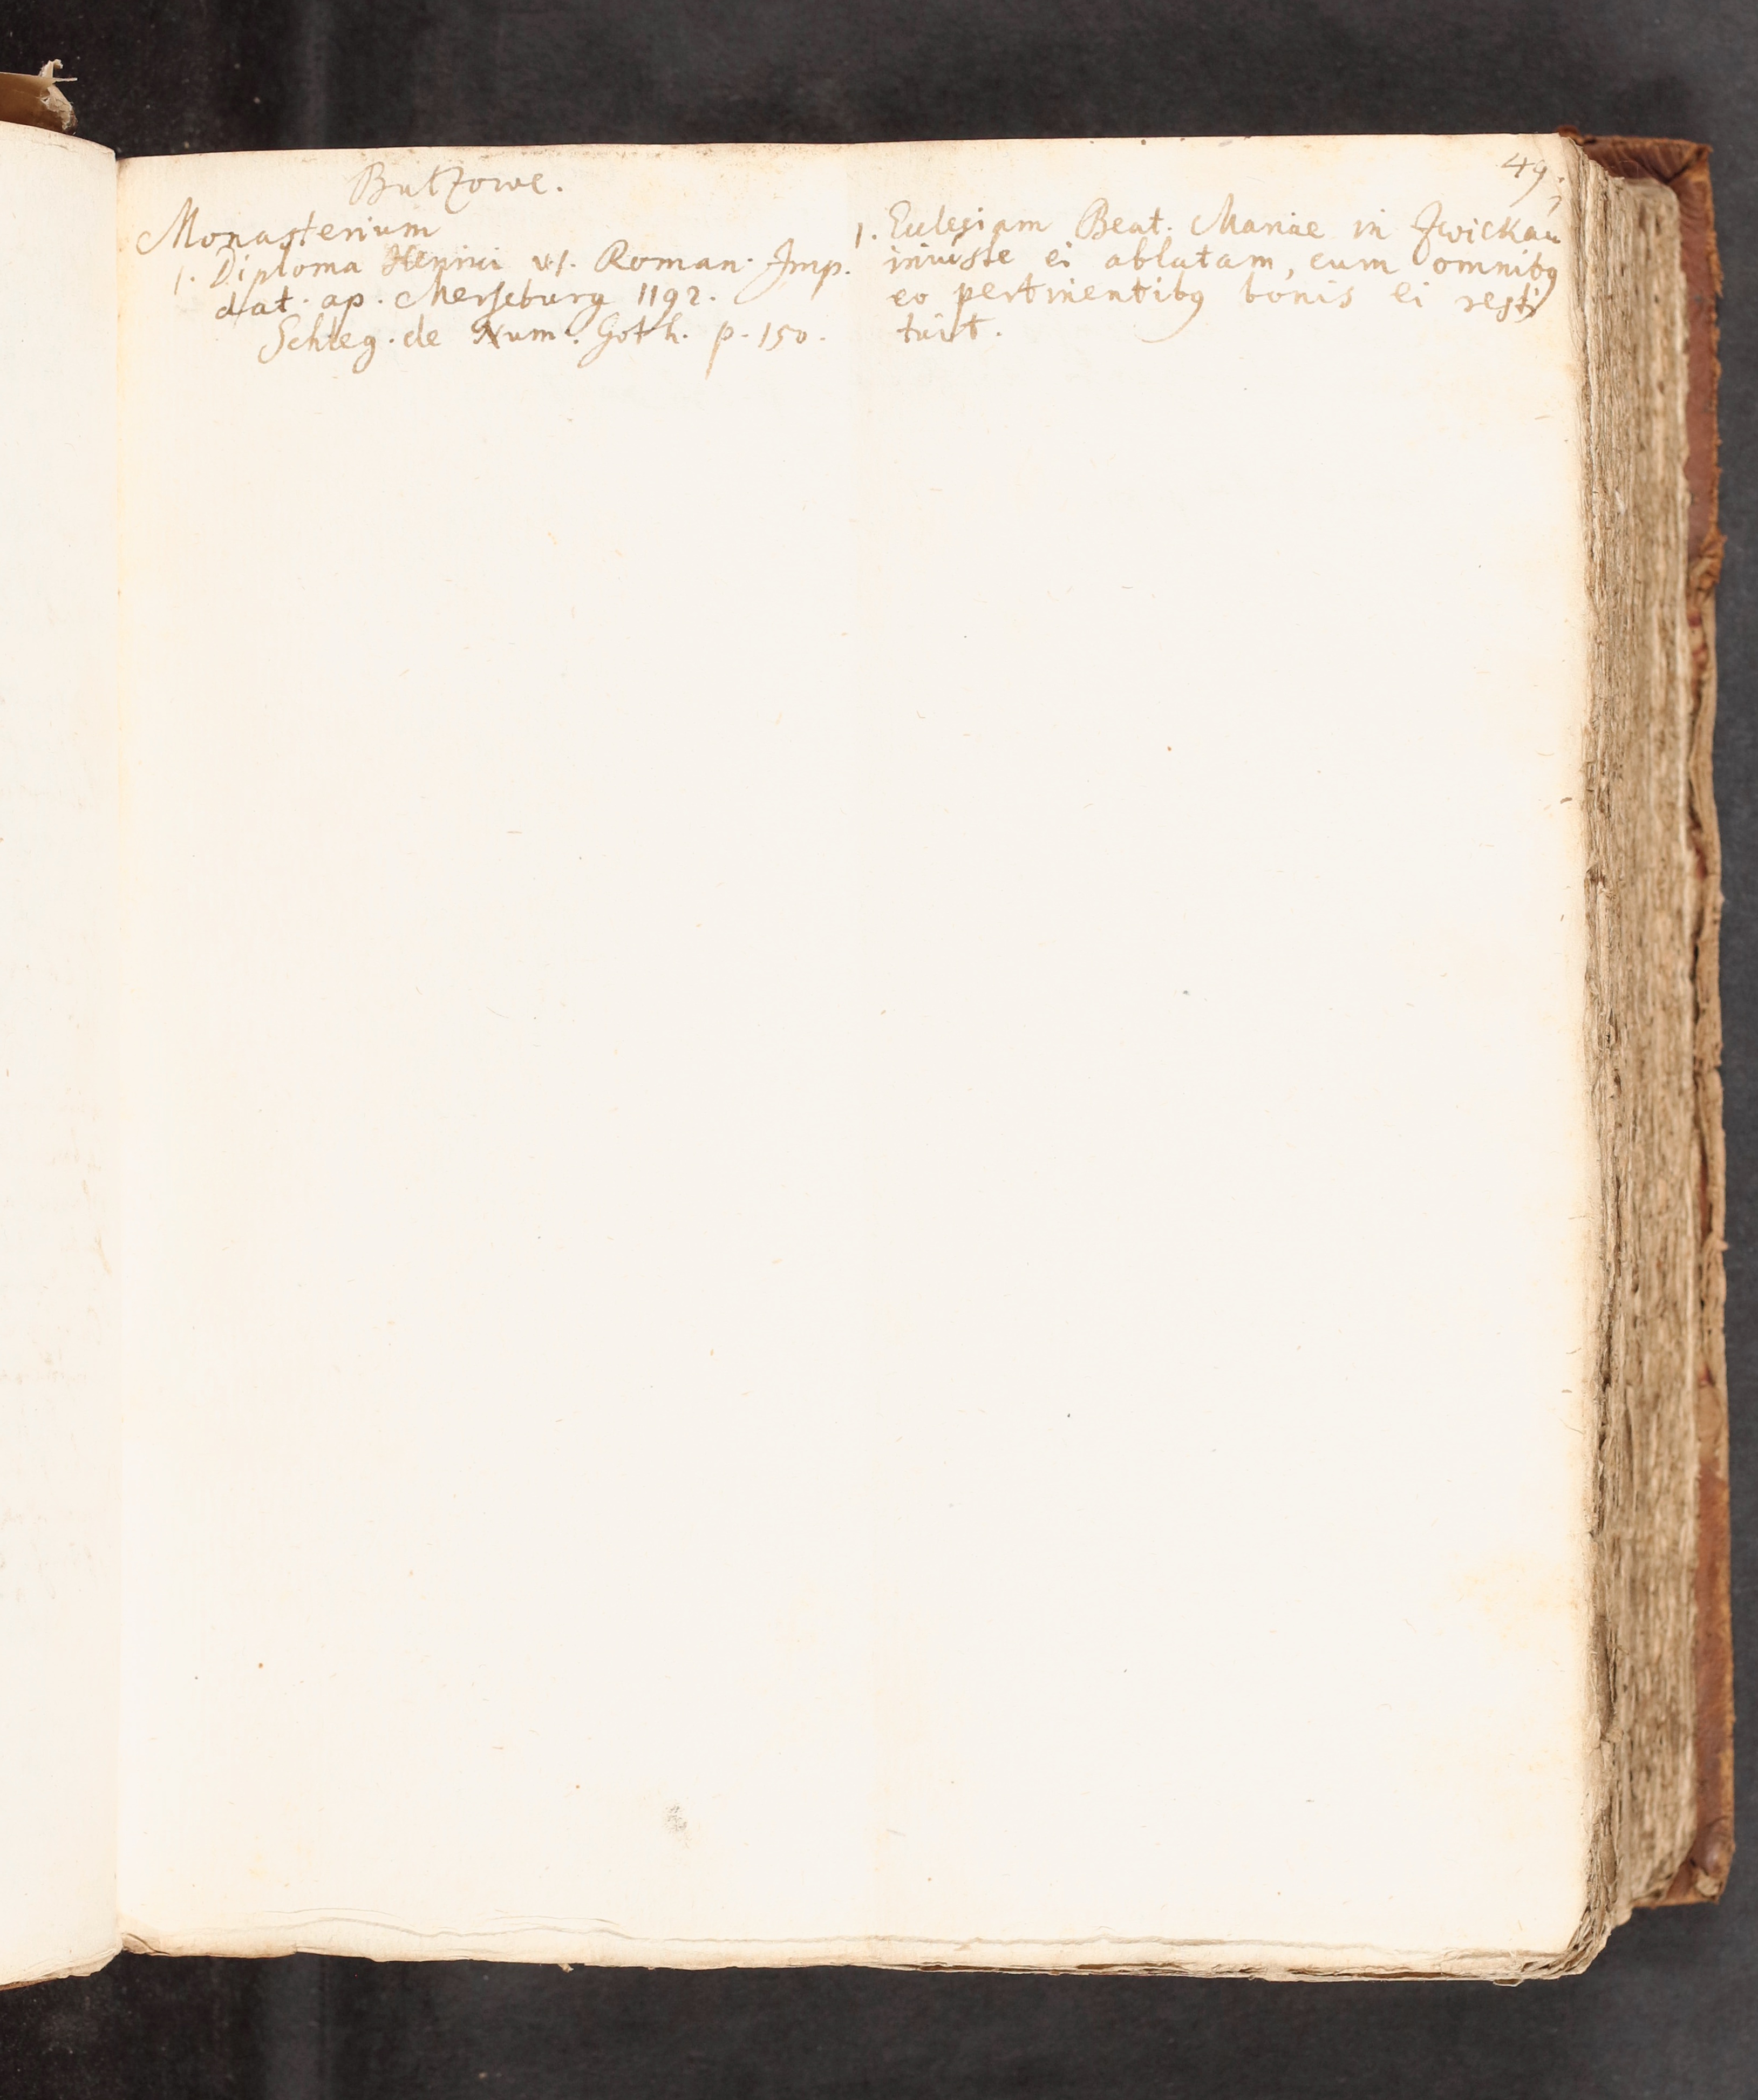 49.
Butzowe.
Monasterium
1. Diploma Henrici VI. Roman. Imp.
dat. ap. Merseburg 1192.
Schleg. de Num. Goth. p. 150.
1. Ecclesiam Beat. Mariae in Zwickau
iniuste ei ablatam, cum omnibq
eo pertinentibq bonis ei resti
tuit.